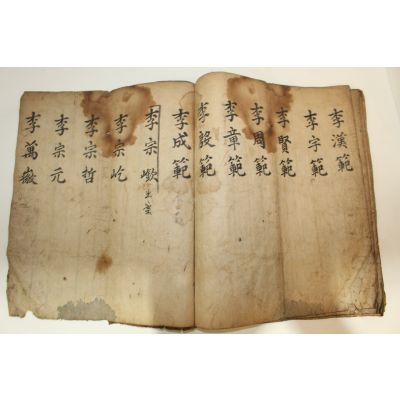 李漢範
李宇範
李賢範
李周範
李章範
李設範
李成範
李宗
李宗屹
李宗哲
李宗元
李萬